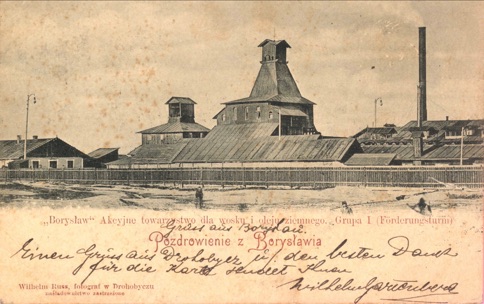 „Borysław“ Akcyjne towarzystwo dla wosku i oleju ziemnego. Grupa I (Förderungsturm)
Gruss aus Borysłau.
Pozdrowienie z Borysławia
Einen Gruss aus Drohobycz u. den besten Dank
für die Karte sendet Ihnen
Wilhelm
Wilhelm Russ, fotograf w Drohobyczu
nakładownictwo zastrzeżone